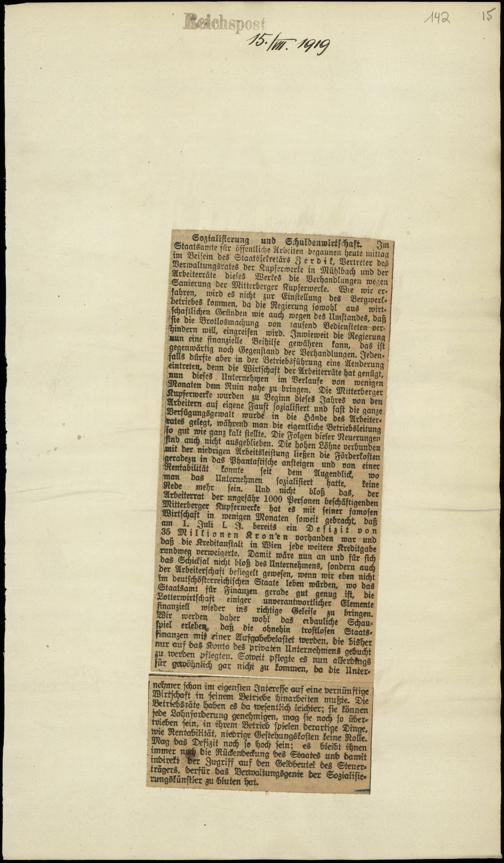 142
15
Reichspost
15./VIII. 1919
Sozialisierung und Schuldenwirtschaft. Im
Staatsamte für öffentliche Arbeiten begannen heute mittag
im Beisein des Staatssekretärs Zerdik, Vertreter des
Verwaltungsrates der Kupferwerke in Mühlbach und der
Arbeiterräte dieses Werkes die Verhandlungen wegen
Sanierung der Mitterberger Kupferwerke. Wie wir er-
fahren, wird es nicht zur Einstellung des Bergwerk-
betriebes kommen, da die Regierung sowohl aus wirt-
schaftlichen Gründen wie auch wegen des Umstandes, daß
sie die Brotlosmachung von tausend Bediensteten ver-
hindern will, eingreifen wird. Inwieweit die Regierung
nun eine finanzielle Beihilfe gewähren kann, das ist
gegenwärtig noch Gegenstand der Verhandlungen. Jeden-
falls dürfte aber in der Betriebsführung eine Aenderung
eintreten, denn die Wirtschaft der Arbeiterräte hat genügt,
nun dieses Unternehmen im Verlaufe von wenigen
Monaten dem Ruin nahe zu bringen. Die Mitterberger
Kupferwerke wurden zu Beginn dieses Jahres von den
Arbeitern auf eigene Faust sozialisiert und fast die ganze
Verfügungsgewalt wurde in die Hände des Arbeiter-
rates gelegt, während man die eigentliche Betriebsleitung
so gut wie ganz kalt stellte. Die Folgen dieser Neuerungen
sind auch nicht ausgeblieben. Die hohen Löhne verbunden
mit der niedrigen Arbeitsleistung ließen die Förderkosten
geradezu in das Phantastische ansteigen und von einer
Rentabilität konnte seit dem Augenblick, wo
man das Unternehmen sozialisiert hatte, keine
Rede mehr sein. Und nicht bloß das, der
Arbeiterrat der ungefähr 1000 Personen beschäftigenden
Mitterberger Kupferwerke hat es mit seiner famosen
Wirtschaft in wenigen Monaten soweit gebracht, daß
am 1. Juli l. J. bereits ein Defizit von
35 Millionen Kronen vorhanden war und
daß die Kreditanstalt in Wien jede weitere Kreditgabe
rundweg verweigerte. Damit wäre nun an und für sich
das Schicksal nicht bloß des Unternehmens, sondern auch
der Arbeiterschaft besiegelt gewesen, wenn wir eben nicht
im deutschösterreichischen Staate leben würden, wo das
Staatsamt für Finanzen gerade gut genug ist, die
Lotterwirtschaft einiger unverantwortlicher Elemente
finanziell wieder ins richtige Geleise zu bringen.
Wir werden daher wohl das erbauliche Schau-
spiel erleben, daß die ohnehin trostlosen Staats-
finanzen mit einer Aufgabe belastet werden, die bisher
nur auf das Konto des privaten Unternehmens gebucht
zu werden pflegten. Soweit pflegte es nun allerdings
für gewöhnlich gar nicht zu kommen, da die Unter-
nehmer schon im eigensten Interesse auf eine vernünftige
Wirtschaft in seinem Betriebe hinarbeiten mußte. Die
Betriebsräte haben es da wesentlich leichter; sie können
jede Lohnforderung genehmigen, mag sie noch so über-
trieben sein, in ihrem Betrieb spielen derartige Dinge,
wie Rentabilität, niedrige Gestehungskosten keine Rolle.
Mag das Defizit noch so hoch sein; es bleibt ihnen
immer noch die Rückendeckung des Staates und damit
indirekt der Zugriff auf den Geldbeutel des Steuer-
trägers, der für das Verwaltungsgenie der Sozialisie-
rungskünstler zu bluten hat.